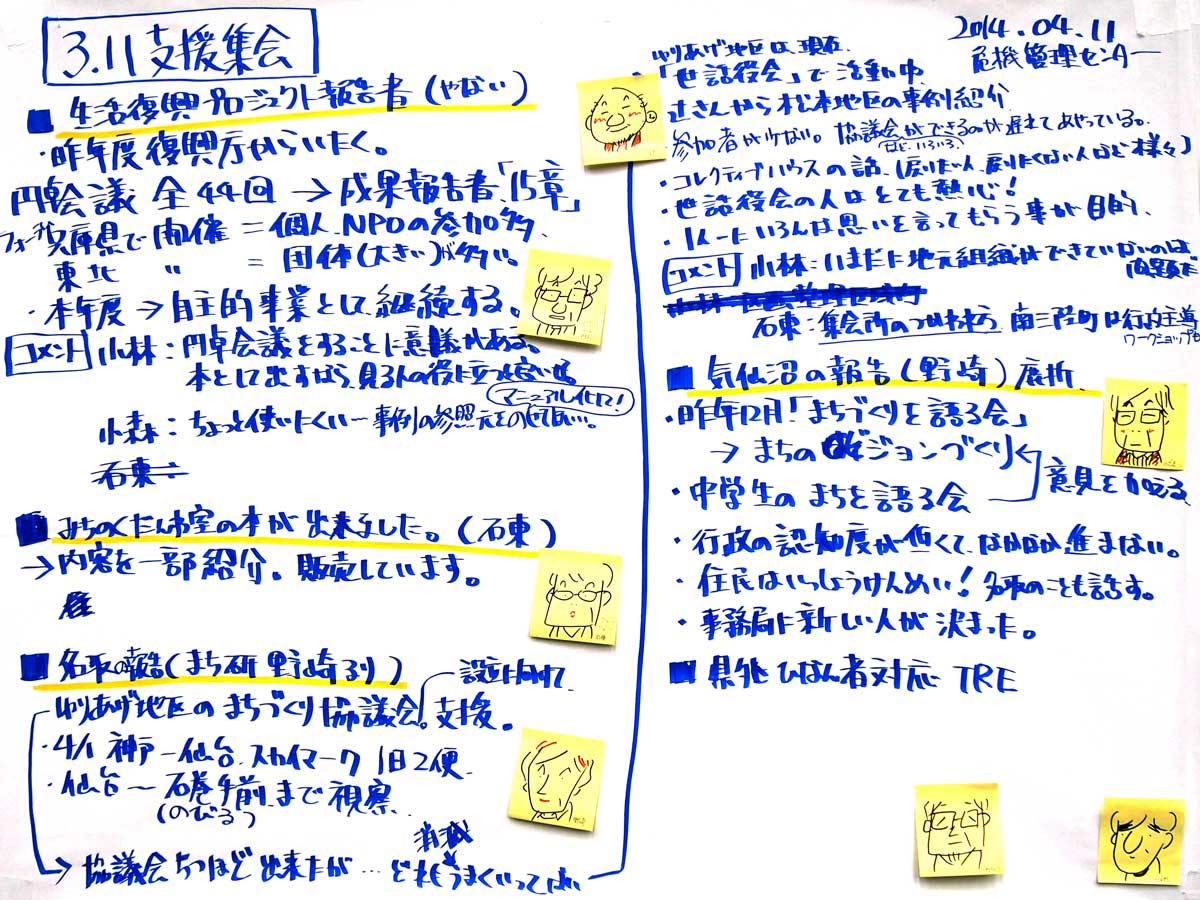 3.11支援集会
■ 生活復興プロジェクト報告書(やない)
・昨年度復興庁からいたく。
円卓会議 全44回 → 成果報告書「15章」
兵庫県で開催 = 個人、NPOの参加多
東北 〃 = 団体(大きい)が多い。
・本年度→自主的事業として継続する。
コメント 小林:円卓会議をすることに意議がある。
本として出すなら、見る人の役に立つと
マニュアル化して!
小森:ちょっと使いにくい〜事例の参照元をのせてほしい。
石東:
■ みちのくたんす室の本が出来ました。(石東)
→ 内容を一部紹介。販売しています。
■ 名取の報告(まち研 野崎
設立に向けて
ゆりあげ地区のまちづくり協議会。支援。
・4/1 神戸ー仙台 スカイマーク 1日2便
・仙台〜石巻手前まで視察
(のびる)
消滅
→ 協議会5つほど出来たが…どれもうまくいってない
2014.04.11
危機管理センター
ゆりあげ地区は、現在
「世話役会」で活動中
辻さんから松本地区の事例紹介
・参加者が少ない。協議会ができるのが遅れてあやっている。
・コレクティブハウスの話、(戻りたい人、戻りたくない人など様々)
・世話役会の人はとても熱心!
・1人一人いろんな思いを言ってもらう事が目的
コメント 小林:いまだに地元組織ができていないのは問題だ
石東:集会所のつかわれ方 南三陸町は行政主導
ワークショップも
■ 気仙沼の報告(野崎)鹿折
・昨年12月「まちづくりを語る会」
→ まちのビジョンづくり
・中学生のまちを語る会
意見を加える
・行政の認知度が低くて、なかなか進まない。
・住民はいっしょうけんめい!名取のことも話す。
・事務局に新しい人が決まった。
■ 県外ひなん者対応 TRE